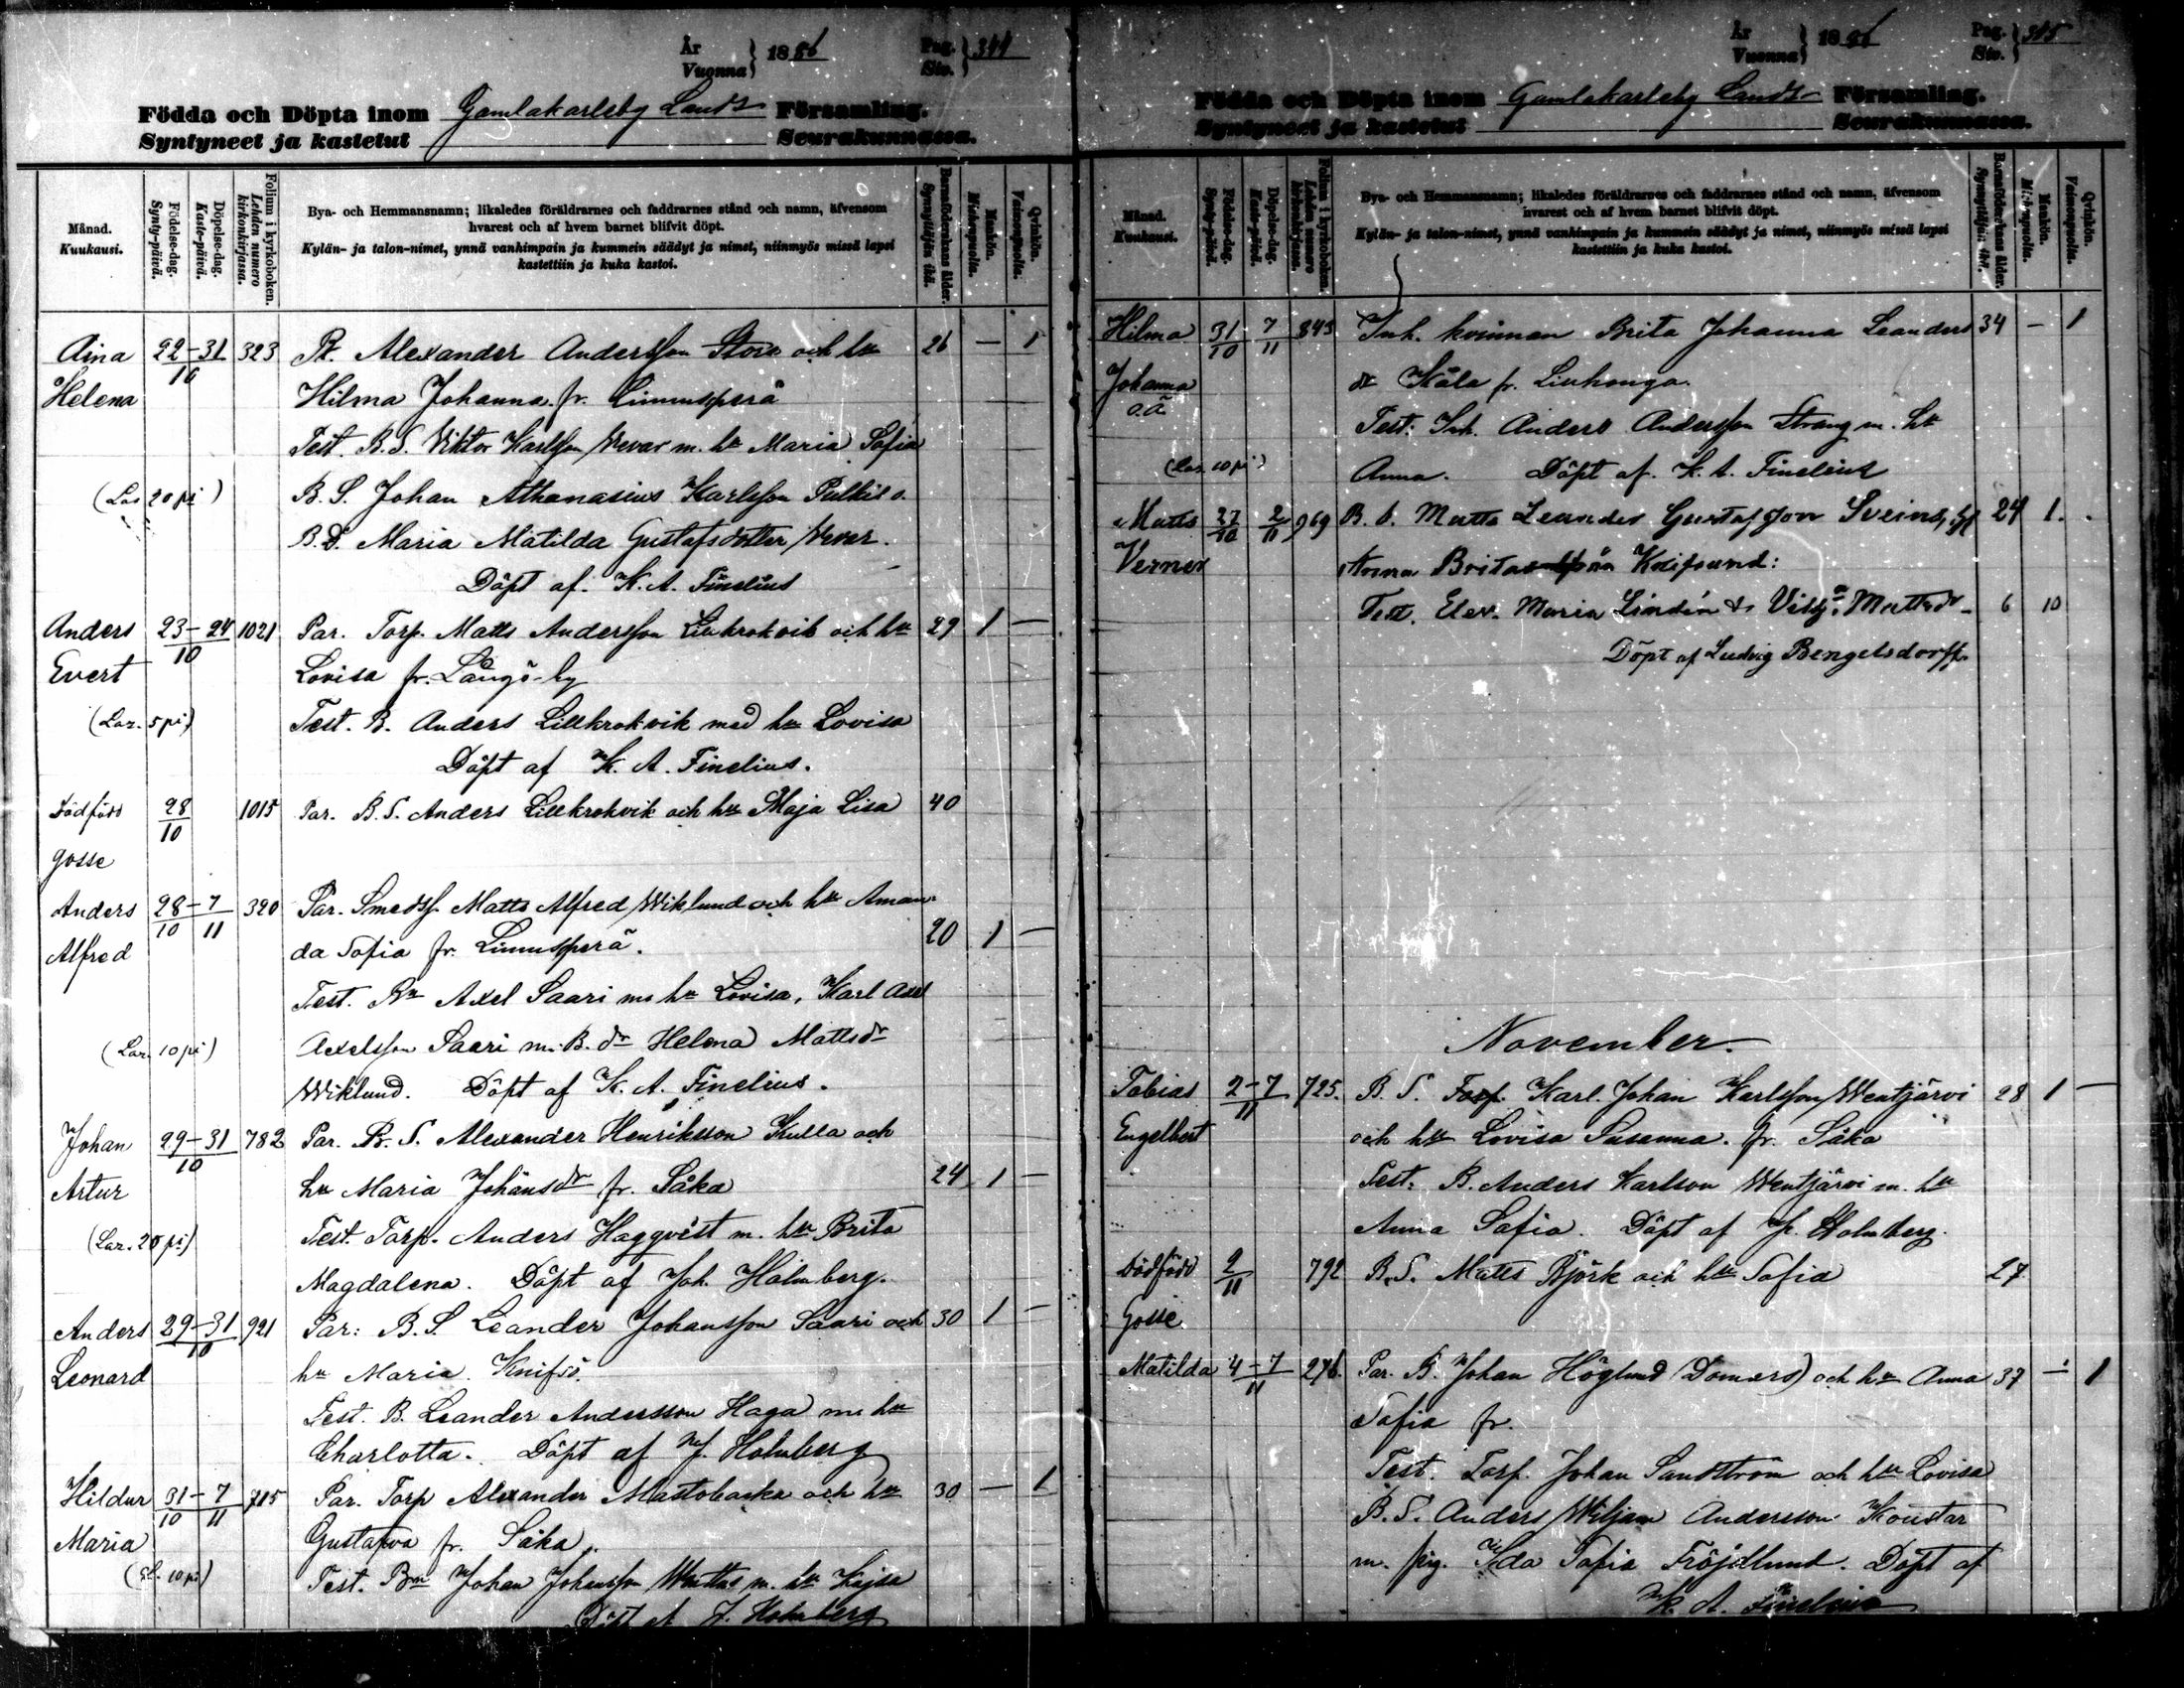 År
Vuonna } 1886
Pag.
Siv. } 344
Födda och Döpta inom Gamlakarleby Lands Församling.
Syntyneet ja kastetut Seurakunnassa.
Månad.
Kuukausi.
Födelse-dag.
Synty-päivä.
Döpelse-dag.
Kaste-päivä.
Folium i kyrkoboken.
Lehden numero kirkonkirjassa.
Bya- och Hemmansnamn; likaledes föräldrarnes och faddrarnes stånd och namn, äfvensom
hvarest och af hvem barnet blifvit döpt.
Kylän- ja talon-nimet, ynnä vanhimpain ja kummein säädyt ja nimet, niinmyös missä lapsi
kastettiin ja kuka kastoi.
Barnaföderskans ålder.
Synnyttäjän ikä.
Mankön.
Miehenpuolia.
Qvinkön.
Vaimonpuolia.
Aina 22-31/10 323 Alexander Andersson Stora och hu 26 — 1
Helena Hilma Johanna fr. Linnusperä
Test. B. S. Viktor Karlsson Wevar m. hu Maria Sofia
(Las 20 pi) B. S. Johan Athanasius Karlsson Pulkis o.
B.D. Maria Matilda Gustafsdotter Wevar.
Döpt af K. A. Finelius
Anders 23-24/10 1021 Par. Torp. Matts Andersson Lillkrokvik och hu 29 1 —
Evert Lovisa fr. Långö-by
(Laz. 5 pi) Test. B. Anders Lillkrokvik med hu Lovisa
Döpt af K. A. Finelius.
Dödfödd 28/10 1015 Par. B. S. Anders Lillkrokvik och hu Maja Lisa 40
gosse
Anders 28/10-7/11 320 Par. Smedsf. Matts Alfred Wiklund och hu Aman-
Alfred da Sofia fr. Linnusperä. 20 1 —
Test. Bn Axel Saari m. hu Lovisa, Karl Axel
(Laz. 10 pi) Axelsson Saari m. B. dr Helena Mattsdr
Wiklund. Döpt af K. A. Finelius.
Johan 29-31/10 782 Par. B. S. Alexander Henriksson Kulla och
Artur hu Maria Johansdr fr. Såka 24 1 —
(Laz. 20 pi) Test. Torp. Anders Haggqvist m. hu Brita
Magdalena. Döpt af Joh. Holmberg.
Anders 29-31/10 921 Par: B. S. Leander Johansson Saari och 30 1 —
Leonard hu Maria. Knifsö.
Test. B. Leander Andersson Haga m. hu
Charlotta. Döpt af J. Holmberg
Hildur 31/10-7/11 715 Par. Torp Alexander Mastobacka och hu 30 — 1
Maria Gustafva fr. Såka.
(10 pi) Test. Bn Johan Johansson m. hu Kajsa
Döpt af J. Holmberg
År
Vuonna } 1886
Pag.
Siv. } 345
Födda och Döpta inom Gamlakarleby Lands- Församling.
Syntyneet ja kastetut Seurakunnassa.
Månad.
Kuukausi.
Födelse-dag.
Synty-päivä.
Döpelse-dag.
Kaste-päivä.
Folium i kyrkoboken.
Lehden numero kirkonkirjassa.
Bya- och Hemmansnamn; likaledes föräldrarnes och faddrarnes stånd och namn, äfvensom
hvarest och af hvem barnet blifvit döpt.
Kylän- ja talon-nimet, ynnä vanhimpain ja kummein säädyt ja nimet, niinmyös missä lapsi
kastettiin ja kuka kastoi.
Barnaföderskans ålder.
Synnyttäjän ikä.
Mankön.
Miehenpuolia.
Qvinkön.
Vaimonpuolia.
Hilma 31/10 7/11 843 Inh. kvinnan Brita Johanna Leanders 34 — 1
Johanna dr Kåla fr. Linhonga.
o.ä. Test: Inh. Anders Andersson Strang m. hu
(Laz. 10 pi) Anna. Döpt af K. A. Finelius
Matts 27/10 2/11 969 B. S. Matts Leander Gustafsson Sveins, 24 1.
Verner Anna Brita från Knifsund:
Test. Elev. Maria Lindén & Mattsdr 6 10
Döpt af Ludvig Bengelsdorff.
November.
Tobias 2-7/11 725. B. S. Torp. Karl Johan Karlsson Wentjärvi 28 1 —
Engelbert och hu Lovisa Susanna. fr. Såka
Test. B. Anders Karlson Wentjärvi m. hu
Anna Sofia. Döpt af J. Holmberg.
Dödfödd 2/11 792 B. S. Matts Björk och hu Sofia 27
Gosse
Matilda 4-7/11 276. Par. B. Johan Höglund (Domars) och hu Anna 37 — 1
Sofia fr.
Test. Torp. Johan Sandström och hu Lovisa
B. S. Anders Wiljam Andersson Koustar
m. pig. Ida Sofia Fröjdlund. Döpt af
K. A. Finelius